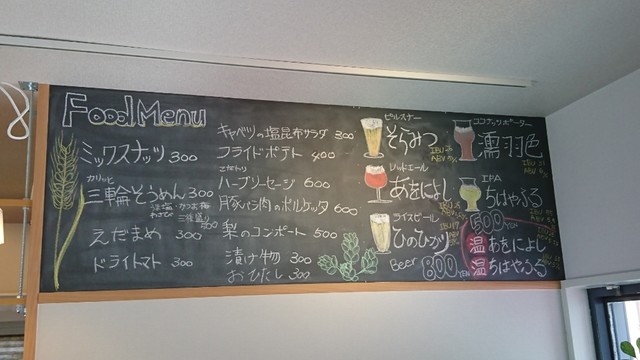 Food Menu
ミックスナッツ 300
カリッと
三輪そうめん 300
えだまめ 300
ドライトマト 300
キャベツの塩昆布サラダ 300
フライドポテト 400
ハーブソーセージ 600
月豚バラ肉のポルケッタ 600
梨のコンポート 500
漬け物 300
おひたし 300
ピルスナー
そらみつ
レッドエール
あをによし
ライスビール
ひのひかり
Beer 800 YEN
ココナッツポーター
濡羽色
IPA
ちはやふる
500 YEN
温 あをによし
温 ちはやふる